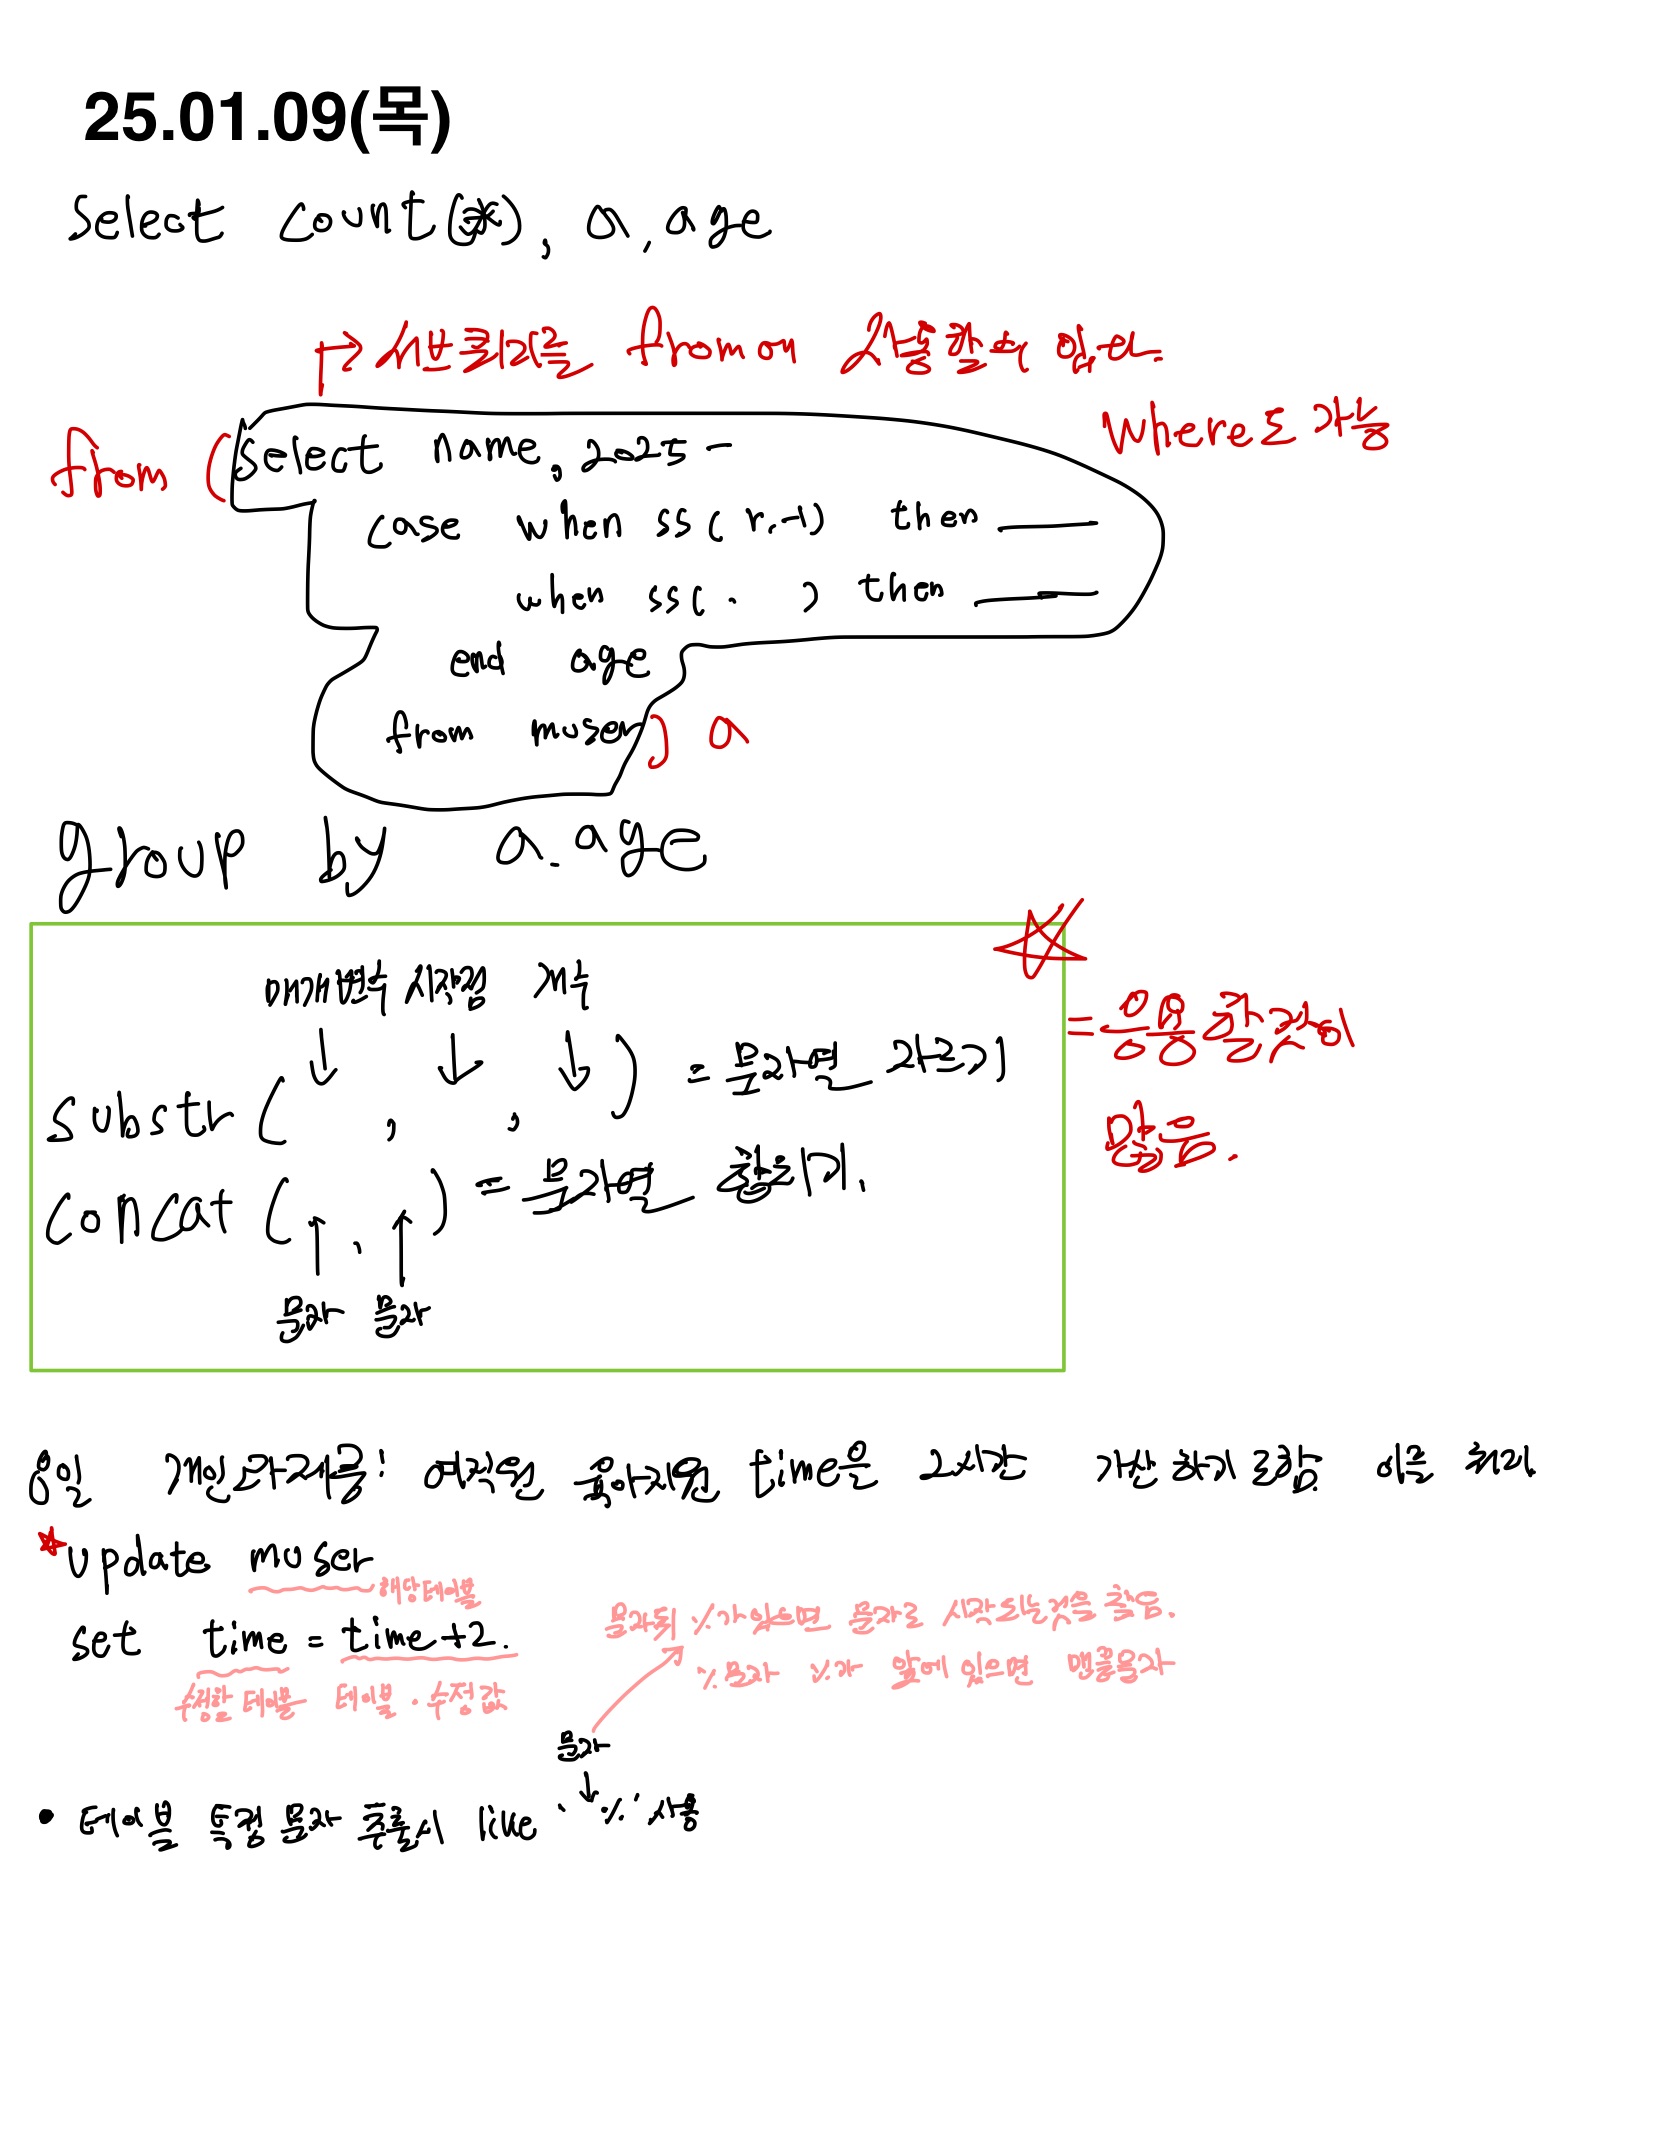 25.01.09(목)
Select count(*), a.age
→ 서브쿼리를 from에 사용할수 있다
where도 가능
from (select name, 2025 -
case when ss(r.-1) then ___
when ss( . ) then ___
end age
from muser) a
group by a.age
매개변수 시작점 개수
substr( , , ) = 문자열 자르기
= 응용할것이
많음.
concat( , ) = 문자열 합치기.
문자 문자
8일 개인과제중! 여직원 육아지원 time은 2시간 가산하기로함. 이를 처리
*update muser
해당테이블
set time = time+2.
수정할 테이블 테이블 . 수정값
문자뒤 %가있으면 문자로 시작되는것을 찾음.
%문자 %가 앞에 있으면 맨끝문자
문자
• 테이블 특정 문자 추출시 like ' %' 사용